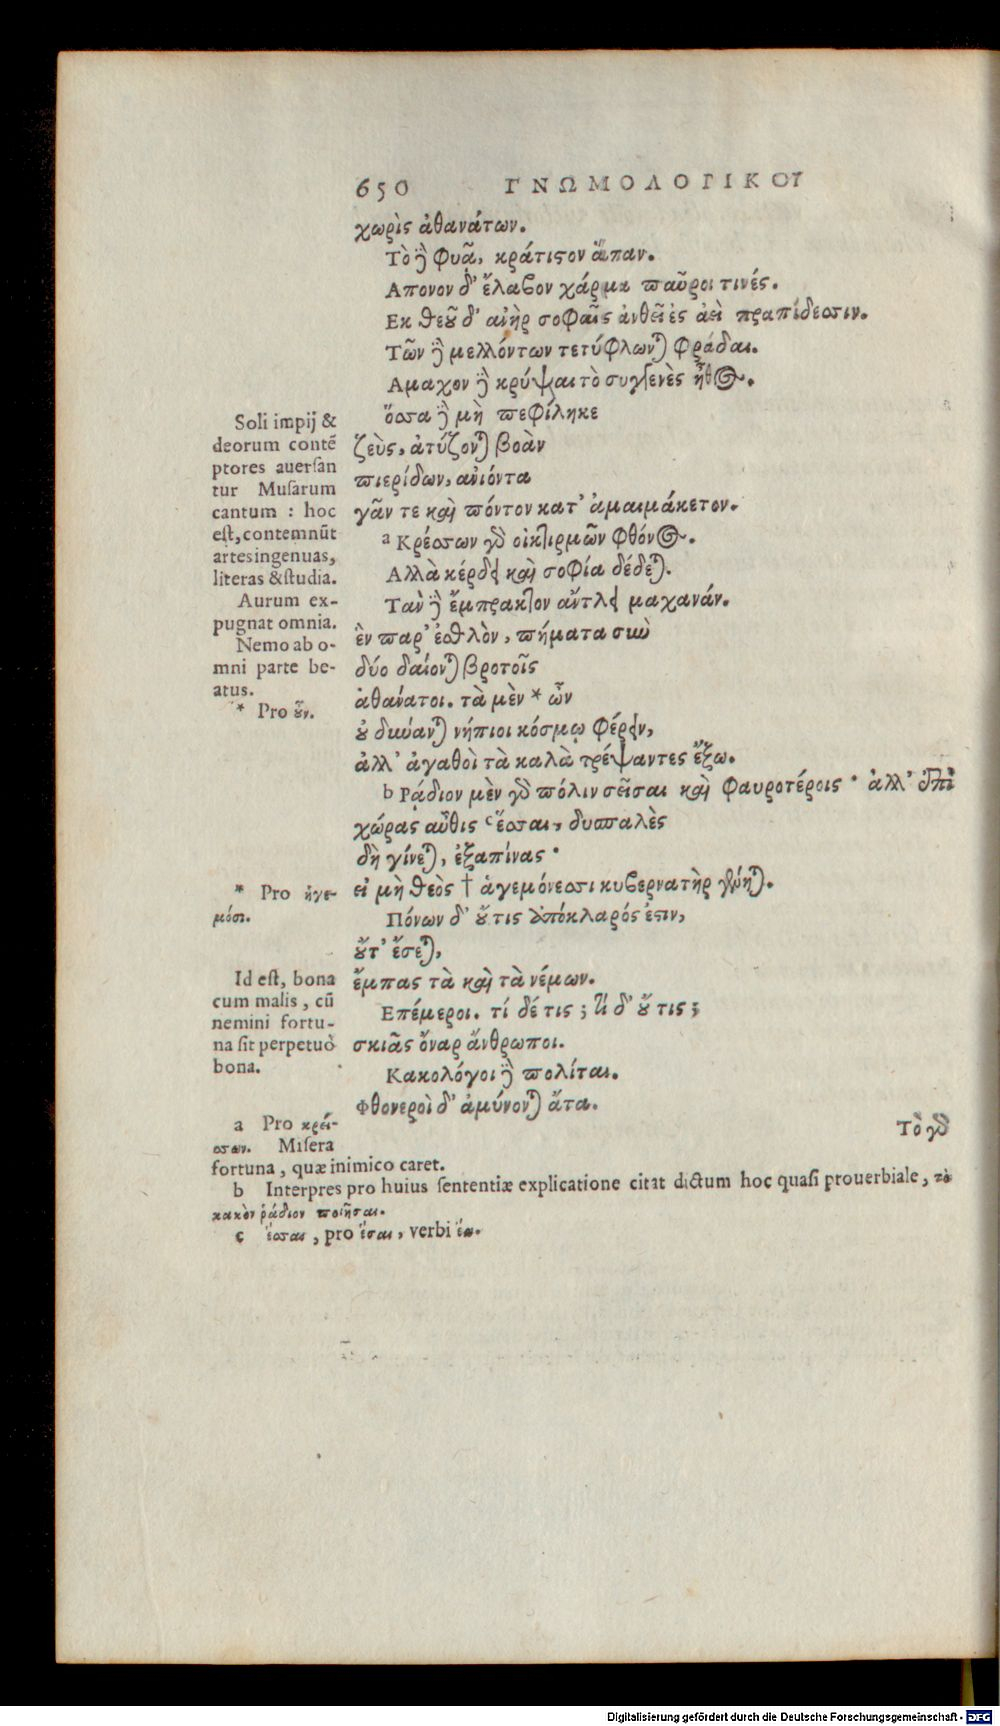 650 ΓΝΩΜΟΛΟΓΙΚΟΥ
χωρὶς ἀθανάτων.
Τὸ ἢ φυᾷ, κράτιστον ἅπαν.
Απονον δ' ἔλαβον χάρμα παῦροι τινές.
Εκ θεοῦ δ' ἀνὴρ σοφαῖς ἀνθεῖ ἐς ἀεὶ πραπίδεσσιν.
Τῶν δὲ μελλόντων τετύφλωνται φράδαι.
Αμαχον δὲ κρύψαι τὸ συγγενὲς ἦθος.
ὅσσα δὲ μὴ πεφίληκε
ζεὺς, ἀτύζονται βοὰν
πιερίδων, ἀϊόντα
γᾶν τε καὶ πόντον κατ' ἀμαιμάκετον.
a Κρέσσων γὰρ οἰκτιρμῶν φθόνος.
Αλλὰ κέρδει καὶ σοφία δέδεται.
Ταν δὲ ἔμπρακτον ἄντλει μαχανάν.
ἓν παρ' ἐσθλὸν, πήματα σιωὺ
δύο δαίονται βροτοῖς
ἀθανατοι. τὰ μὲν * ὦν
οὐ δύνανται νήπιοι κόσμῳ φέρειν,
ἀλλ' ἀγαθοὶ τὰ καλὰ τρέψαντες ἔξω.
b Ράδιον μὲν γὰρ πόλιν σεῖσαι καὶ φαυροτέροις · ἀλλ' ἐπὶ
χώρας αὖθις c ἕσσαι, δυσπαλὲς
δὴ γίνεται, ἐξαπίνας ·
εἰ μὴ θεὸς † ἁγεμόνεσσι κυβερνατὴρ γένηται.
Πόνων δ' οὔτις ἀπόκλαρός ἐστιν,
οὔτ' ἔσεται,
ἔμπας τὰ καὶ τὰ νέμων.
Επέμεροι. τί δέ τις; τί δ' οὔ τις;
σκιᾶς ὄναρ ἄνθρωποι.
Κακολόγοι δὲ πολίται.
Φθονεροὶ δ' ἀμύνονται ἄτα.
Τὸ γὰρ
Soli impij &
deorum contẽ
ptores auersan
tur Musarum
cantum : hoc
est, contemnũt
artes ingenuas,
literas & studia.
Aurum ex-
pugnat omnia.
Nemo ab o-
mni parte be-
atus.
* Pro οὖν.
* Pro ἡγε-
μόσι.
Id est, bona
cum malis, cũ
nemini fortu-
na sit perpetuò
bona.
a Pro κρεί-
σσων. Misera
fortuna, quæ inimico caret.
b Interpres pro huius sententiæ explicatione citat dictum hoc quasi prouerbiale, τὸ
κακὸν ῥάδιον ποιῆσαι.
c ἕσσαι, pro ἕσαι, verbi ἕω.
Digitalisierung gefördert durch die Deutsche Forschungsgemeinschaft - DFG